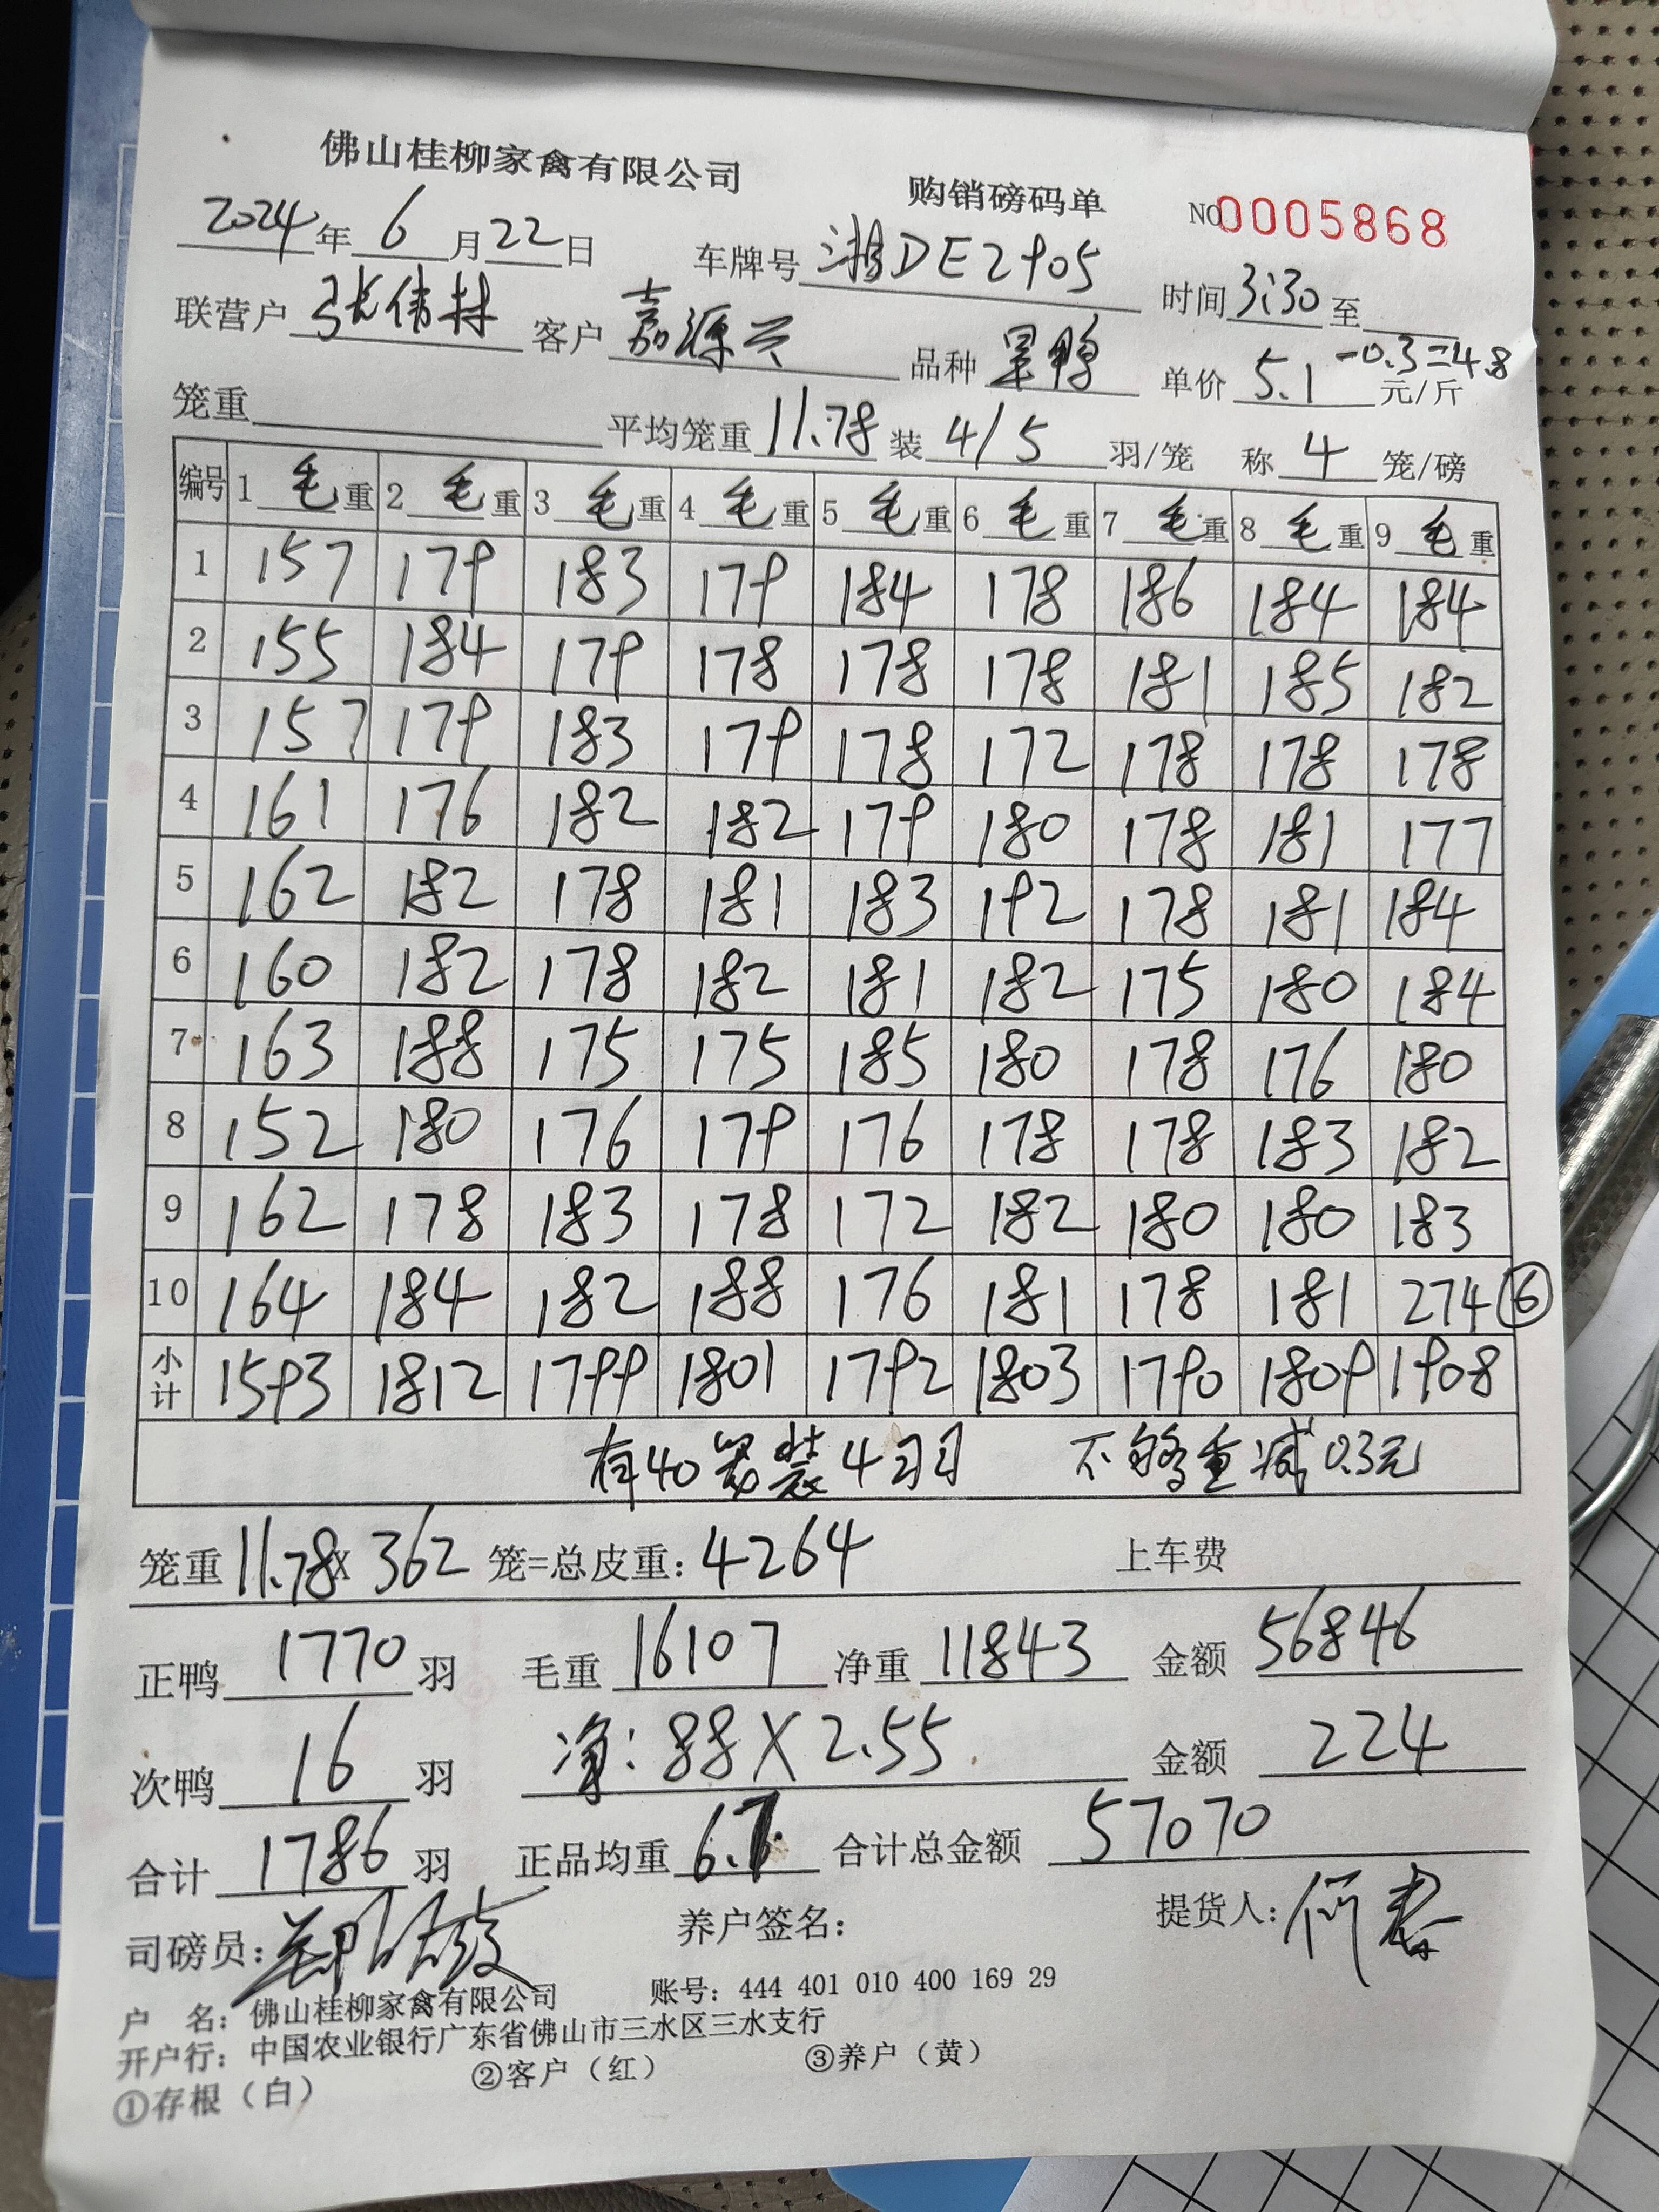 佛山桂柳家禽有限公司 购销磅码单 NO0005868
2024年6月22日 车牌号 湘DE2905 时间 3:30 至
联营户 张伟林 客户 嘉源兴 品种 黑鸭 单价 5.1-0.3=4.8 元/斤
笼重 平均笼重 11.78 装 4/5 羽/笼 称 4 笼/磅
编号 1 毛重 2 毛重 3 毛重 4 毛重 5 毛重 6 毛重 7 毛重 8 毛重 9 毛重
1 157 179 183 179 184 178 186 184 184
2 155 184 179 178 178 178 181 185 182
3 157 179 183 179 178 172 178 178 178
4 161 176 182 182 179 180 178 181 177
5 162 182 178 181 183 192 178 181 184
6 160 182 178 182 181 182 175 180 184
7 163 188 175 175 185 180 178 176 180
8 152 180 176 179 176 178 178 183 182
9 162 178 183 178 172 182 180 180 183
10 164 184 182 188 176 181 178 181 274 ⑥
小计 1593 1812 1799 1801 1792 1803 1790 1809 1908
有40 装4羽 不够重减0.3元
笼重 11.78 X 362 笼=总皮重: 4264 上车费
正鸭 1770 羽 毛重 16107 净重 11843 金额 56846
次鸭 16 羽 净: 88 X 2.55 金额 224
合计 1786 羽 正品均重 6.7 合计总金额 57070
司磅员: 养户签名: 提货人: 何春
户 名: 佛山桂柳家禽有限公司 账号: 444 401 010 400 169 29
开户行: 中国农业银行广东省佛山市三水区三水支行
①存根（白） ②客户（红） ③养户（黄）